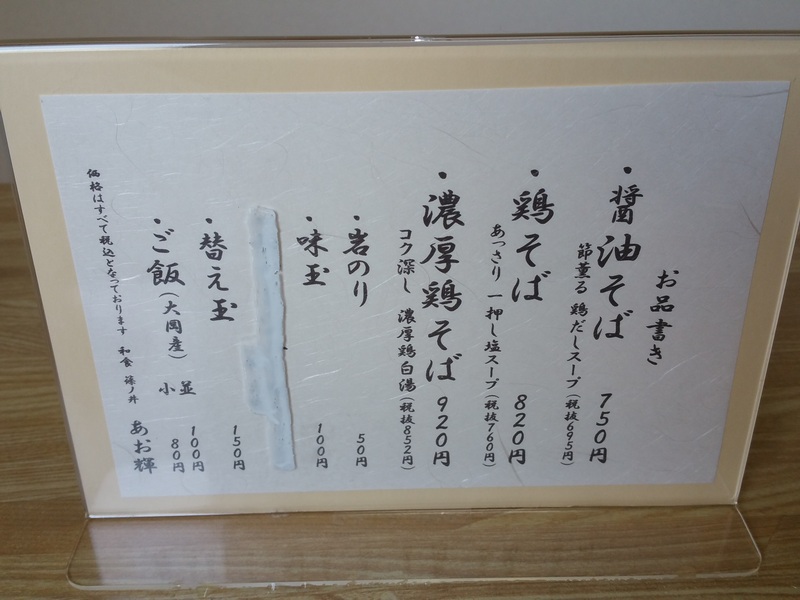 お品書き
・醤油そば 750円
節薫る 鶏だしスープ(税抜695円)
・鶏そば 820円
あっさり 一押し塩スープ(税抜760円)
・濃厚鶏そば 920円
コク深し 濃厚鶏白湯(税抜852円)
・岩のり 50円
・味玉 100円
・替え玉 150円
・ご飯(大岡産) 並 100円
小 80円
価格はすべて税込となっております 和食 篠ノ井
あお輝